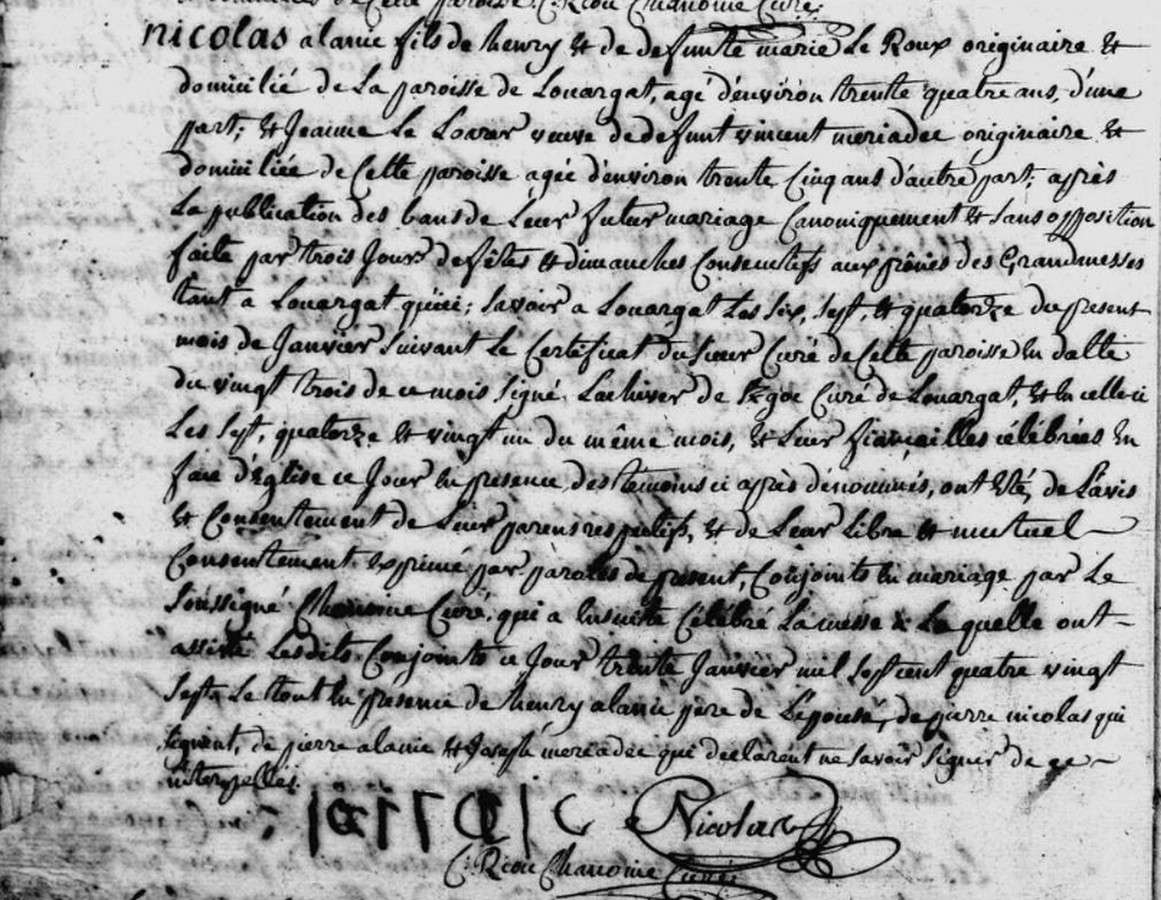 de Cette paroisse. C: Riou Chanoine Curé.
nicolas alanic fils de henry & de defunte marie Le Roux originaire &
domicilié de La paroisse de Louargat, agé d'environ trente quatre ans, d'une
part; & Jeanne Le Loarer veuve de defunt vincent meriadec originaire &
domiciliée de Cette paroisse agée d'environ trente Cinq ans d'autre part; après
La publication des bans de Leur futur mariage Canoniquement & sans opposition
faite par trois Jours de fêtes & dimanches Consecutifs aux prônes des Grandmesses
tant a Louargat qu'ici; savoir a Louargat Les six, sept, & quatorze du present
mois de Janvier suivant Le Certificat du sieur Curé de Cette paroisse en datte
du vingt trois de ce mois signé Lachiver de Curé de Louargat, & en celle ci
Les sept, quatorze & vingt un du même mois, & Leur fiançailles célébrées en
face d'Eglise ce Jour en presence des temoins ci après dénommés, ont Eté, de L'avis
& Consentement de Leur parens respectifs, & de Leur Libre & mutuel
Consentement exprimé par paroles de present, Conjoints en mariage par Le
soussigné Chanoine Curé, qui a Ensuite Célébré La messe à Laquelle ont
assisté Lesdits Conjoints ce Jour trente Janvier mil sept cent quatre vingt
sept. Le tout en presence de henry alanic père de L'epousé, de pierre nicolas qui
signent, de pierre alanic & Joseph meriadec qui declarent ne savoir signer de ce
interpellés.
Nicolas
C: Riou Chanoine Curé.